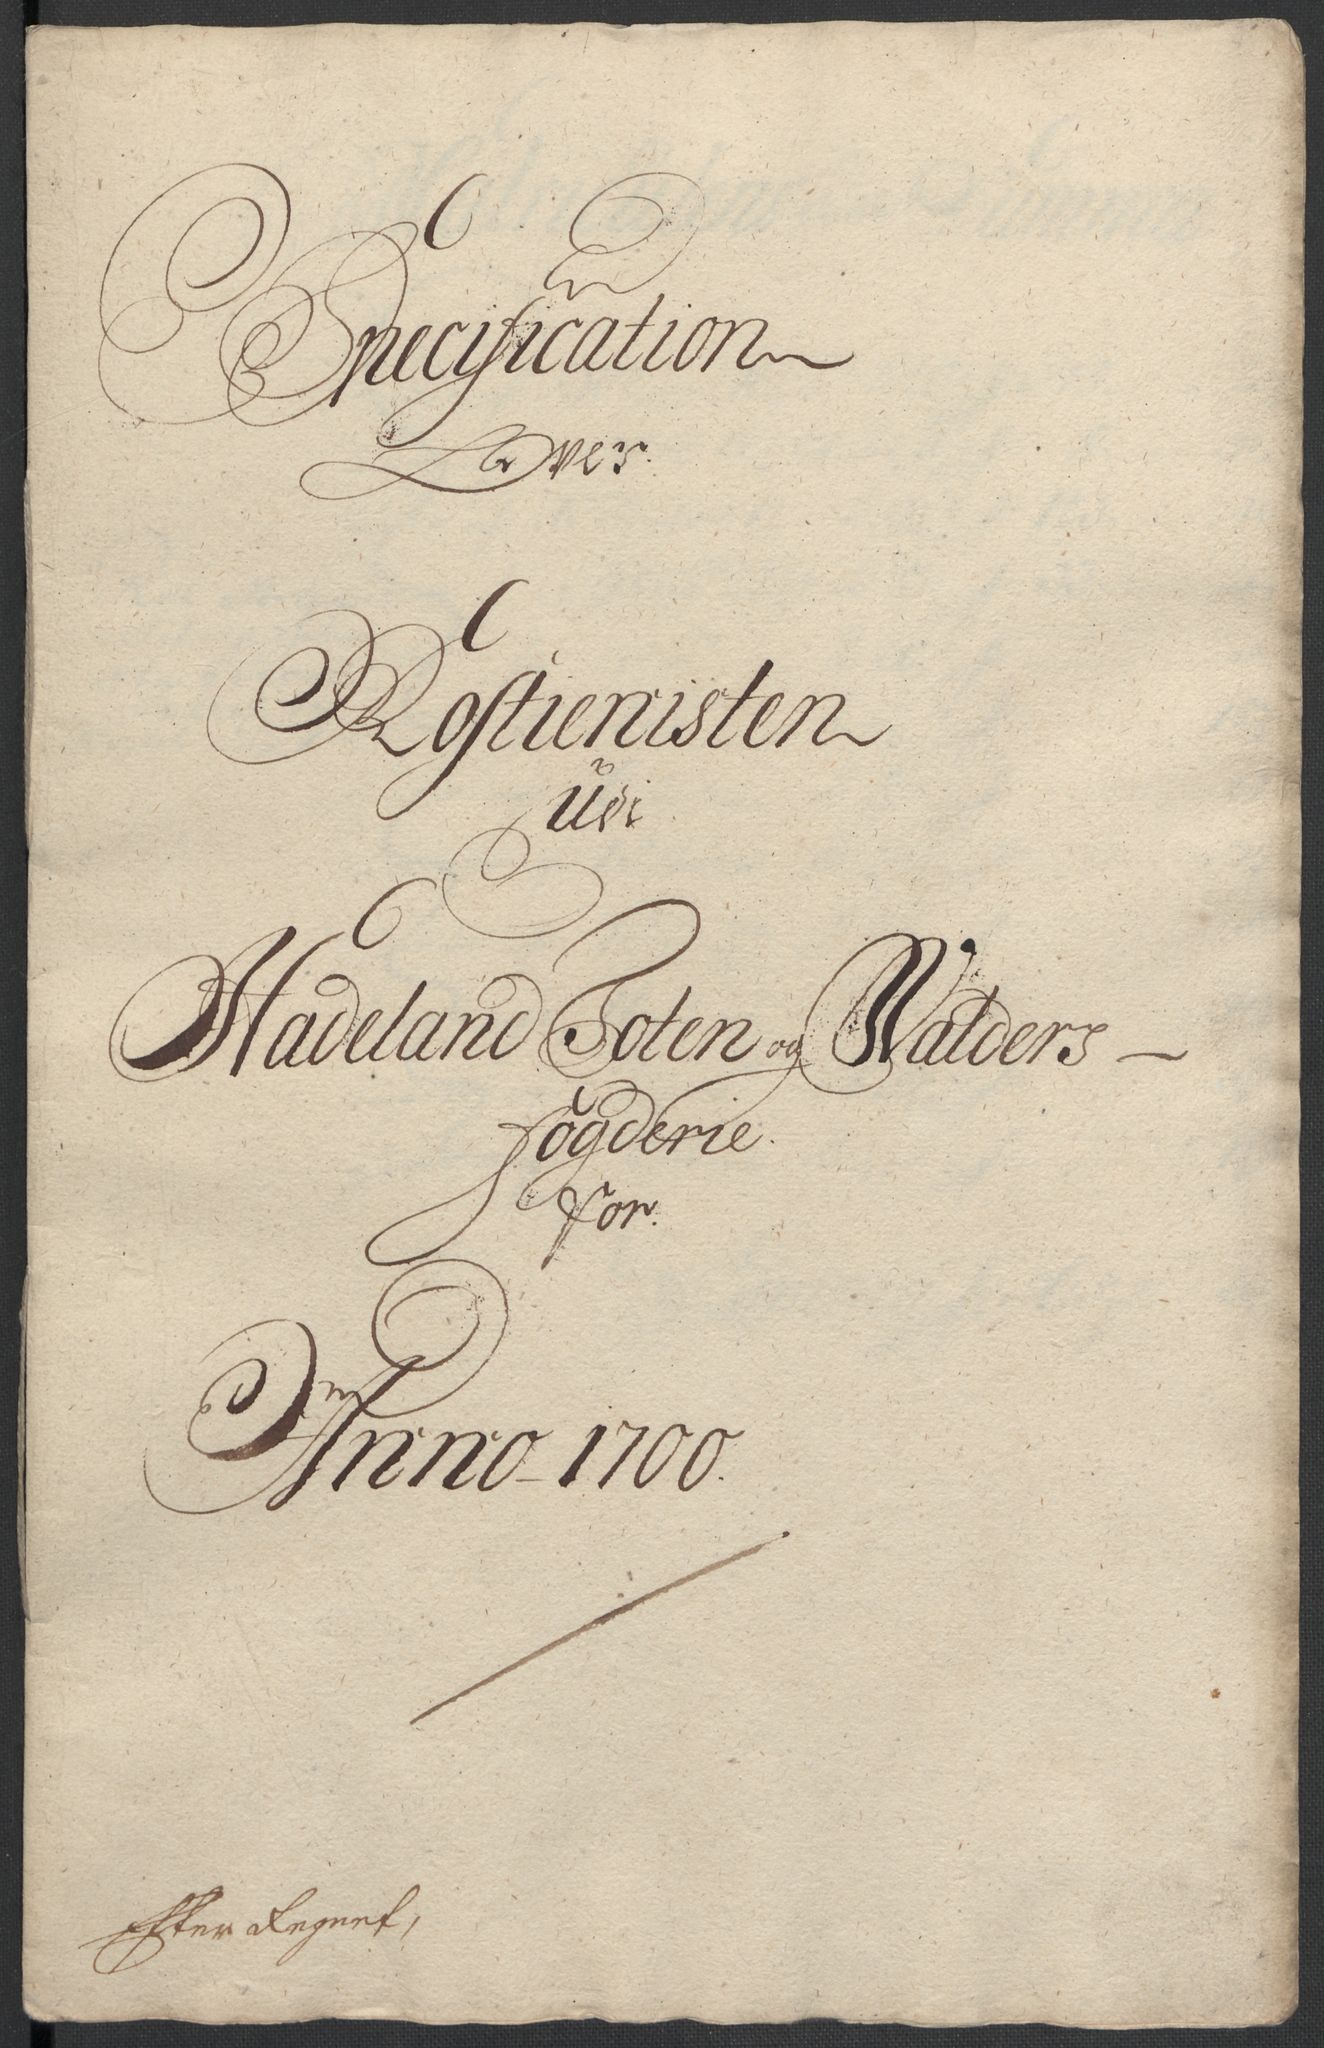 Specification
Over.
Rostienisten
udi
Hadeland Toten og Walders
fögderie.
for.
Anno 1700.
Efter Regnet,